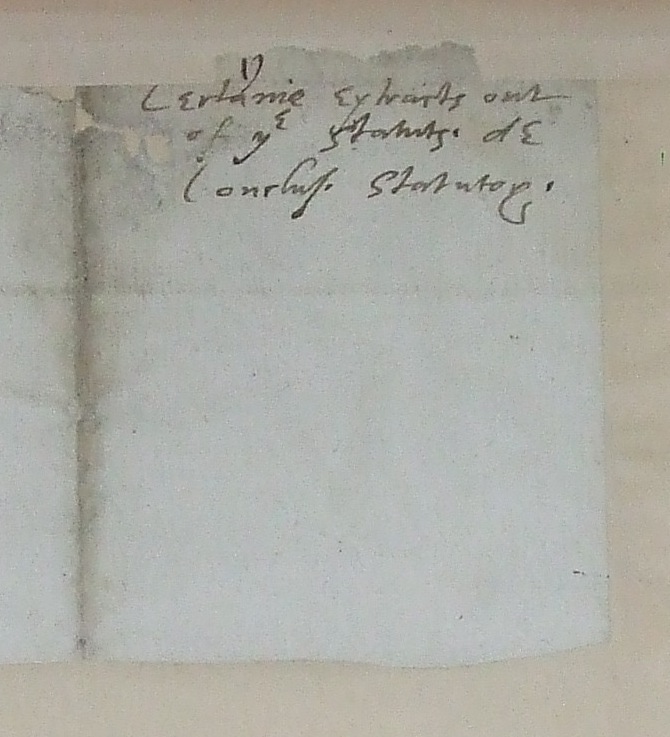 Certanie Extracts out
of yᵉ Statuts. de
Conclus. Statutoꝝ.